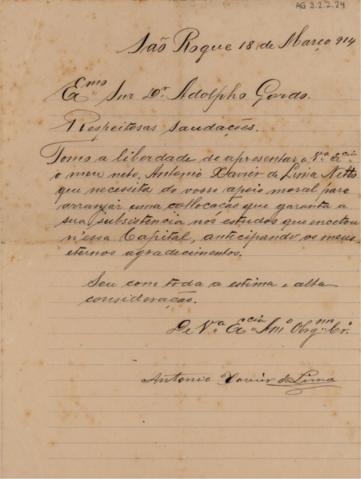 AG 3.2.2.24
São Roque 18 de Março 914
Exmo Snr Dr Adolpho Gordo.
Respeitosas saudações.
Tomo a liberdade de apresentar a V.a Ex.cia
o meu neto, Antonio Xavier de Lima Netto
que necessita do vosso apoio moral para
arranjar uma collocação que garanta a
sua subsistencia nos estudos que encetou
n'essa Capital, anticipando os meus
eternos agradecimentos.
Sou com toda a estima e alta
consideração.
De V.a Ex.cia Am.o Obrg.mo Cr.o
Antonio Xavier de Lima